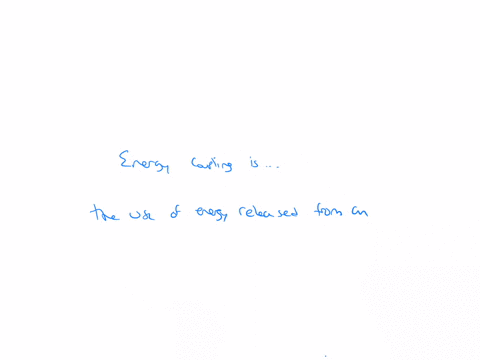 Energy coupling is...
the use of energy released from an